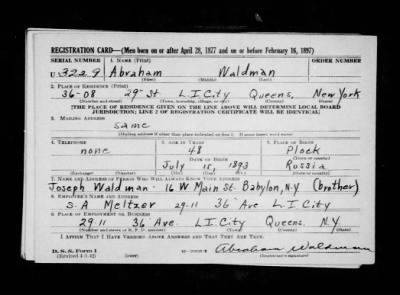 REGISTRATION CARD—(Men born on or after April 28, 1877 and on or before February 16, 1897)
SERIAL NUMBER 1. NAME (Print) ORDER NUMBER
U 3229 Abraham Waldman
(First) (Middle) (Last)
2. PLACE OF RESIDENCE (Print)
36-08 29 St L.I.City Queens, New York
(Number and street) (Town, township, village, or city) (County) (State)
[THE PLACE OF RESIDENCE GIVEN ON THE LINE ABOVE WILL DETERMINE LOCAL BOARD
JURISDICTION; LINE 2 OF REGISTRATION CERTIFICATE WILL BE IDENTICAL]
3. MAILING ADDRESS
same
[Mailing address if other than place indicated on line 2. If same insert word same]
4. TELEPHONE 5. AGE IN YEARS 6. PLACE OF BIRTH
none 48 Plock
DATE OF BIRTH (Town or county)
July 15 1893 Russia
(Exchange) (Number) (Mo.) (Day) (Yr.) (State or country)
7. NAME AND ADDRESS OF PERSON WHO WILL ALWAYS KNOW YOUR ADDRESS
Joseph Waldman - 16 W Main St. Babylon, N.Y (brother)
8. EMPLOYER'S NAME AND ADDRESS
S. A Meltzer 29-11 36 Ave L.I.City
9. PLACE OF EMPLOYMENT OR BUSINESS
29-11 36 Ave. L.I.City Queens. N.Y.
(Number and street or R. F. D. number) (Town) (County) (State)
I AFFIRM THAT I HAVE VERIFIED ABOVE ANSWERS AND THAT THEY ARE TRUE.
D. S. S. Form 1
(Revised 4-1-42) (over) Abraham Waldman
(Registrant's signature)